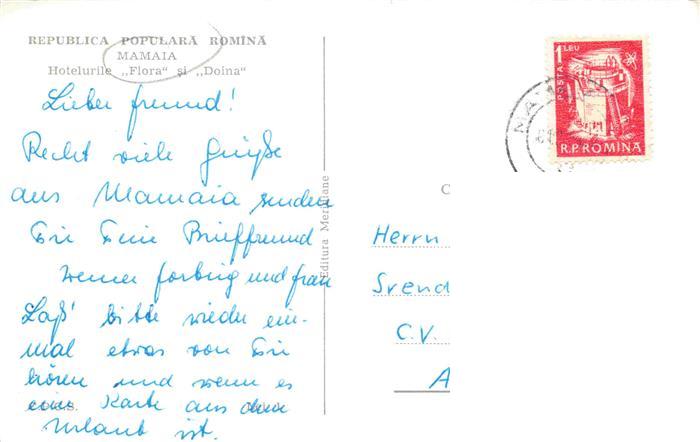 REPUBLICA POPULARĂ ROMÎNĂ
MAMAIA
Hotelurile „Flora" şi „Doina"
Lieber Freund!
Recht viele Grüße
aus Mamaia senden
Dir Dein Brieffreund
Werner und Frau
Laß' bitte wieder ein-
mal etwas von Dir
hören und wenn es
eine Karte aus dem
Urlaub ist.
Editura Meridiane
1 LEU
POSTA
R.P.ROMINA
MAMAIA
C
Herrn
Svend
C.V.
A